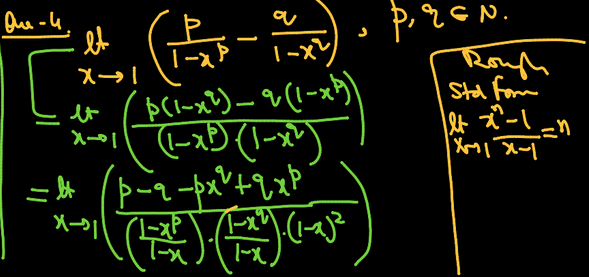 Que-4. lt x→1 (p/(1-x^p) - q/(1-x^q)), p, q ∈ N.
= lt x→1 (p(1-x^q) - q(1-x^p) / (1-x^p)·(1-x^q))
= lt x→1 (p-q-px^q+qx^p / ((1-x^p)/(1-x))·((1-x^q)/(1-x))·(1-x)^2)
Rough
Std form
lt x→1 (x^n-1)/(x-1) = n